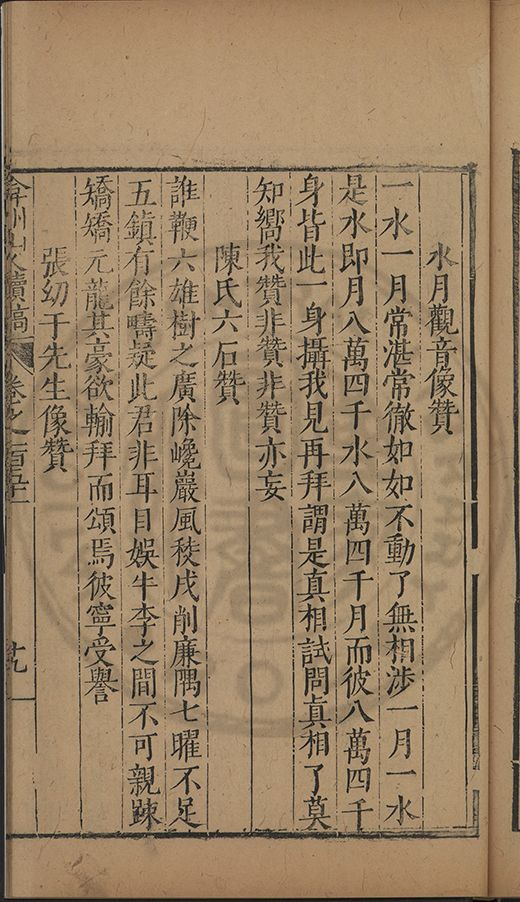 水月觀音像贊
一水一月常湛常徹如如不動了無相涉一月一水
是水即月八萬四千水八萬四千月而彼八萬四千
身皆此一身攝我見再拜謂是真相試問真相了莫
知嚮我贊非贊非贊亦妄
陳氏六石贊
誰鞭六雄樹之廣除巉巖風稜戌削廉隅七曜不足
五鎮有餘疇疑此君非耳目娛牛李之間不可親踈
矯矯元龍其豪欲輸拜而頌焉彼寧受譽
張幼于先生像贊
弇州山人續稿 卷之一百五十
十九